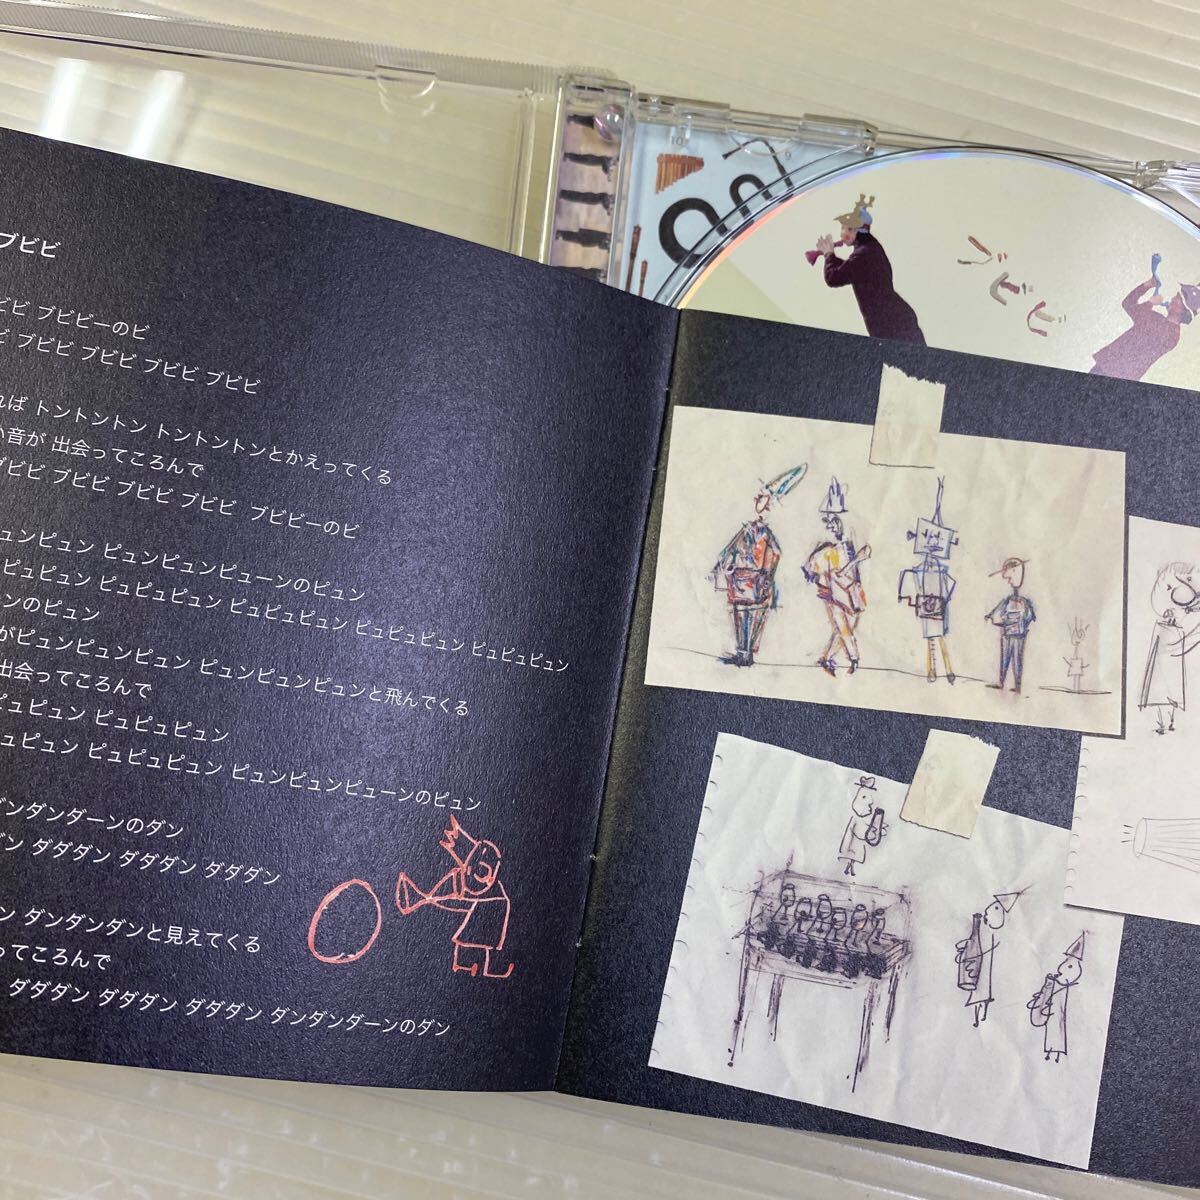 ブビビ
ビビ ブビビーのビ
ビ ブビビ ブビビ ブビビ ブビビ
れば トントントン トントントンとかえってくる
い音が 出会ってころんで
ブビビ ブビビ ブビビ ブビビ ブビビーのビ
ピュンピュン ピュンピュンピューンのピュン
ピュピュン ピュピュピュン ピュピュピュン ピュピュピュン ピュピュピュン
ンのピュン
がピュンピュンピュン ピュンピュンピュンと飛んでくる
出会ってころんで
ピュピュン ピュピュピュン
ュピュン ピュピュピュン ピュンピュンピューンのピュン
ダンダンダーンのダン
ダン ダダダン ダダダン ダダダン
ン ダンダンダンと見えてくる
ってころんで
ダダダン ダダダン ダダダン ダンダンダーンのダン
ブビビ
10
9